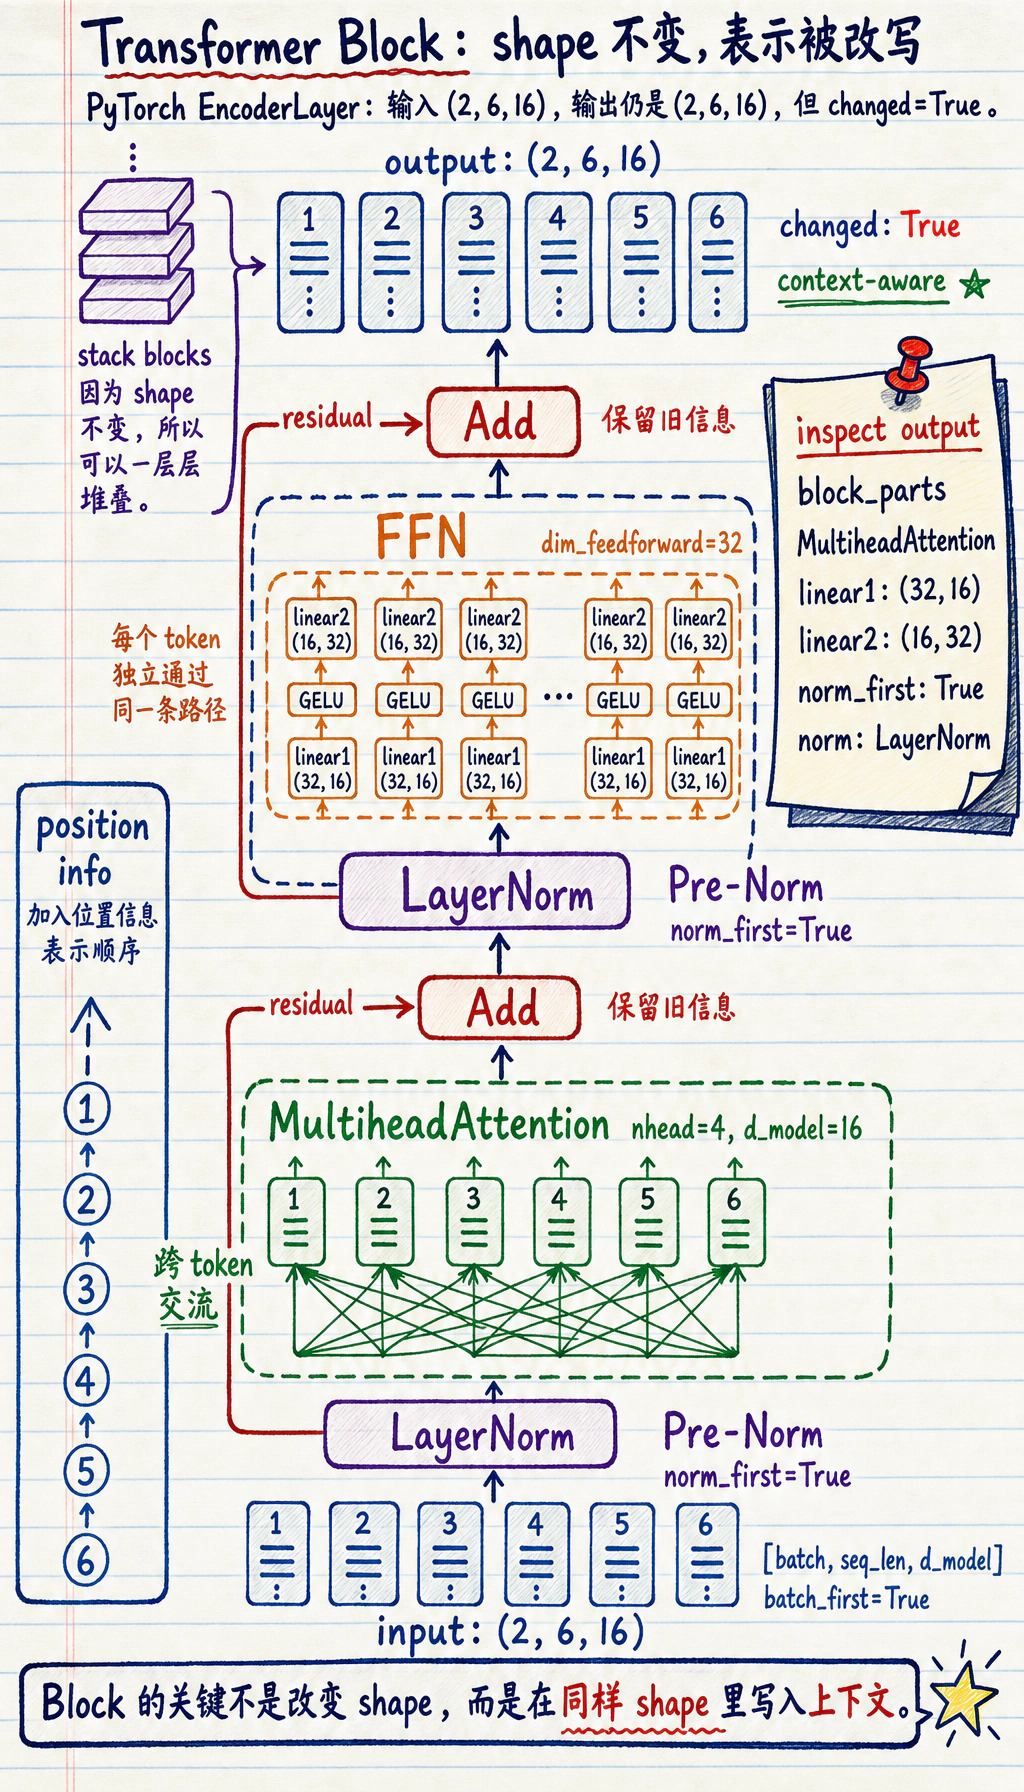 Transformer Block: shape 不变，表示被改写
PyTorch EncoderLayer: 输入 (2, 6, 16)，输出仍是 (2, 6, 16)，但 changed=True。
output: (2, 6, 16)
1 2 3 4 5 6
changed: True
context-aware
stack blocks
因为 shape
不变，所以
可以一层层
堆叠。
residual
Add
保留旧信息
inspect output
block_parts
MultiheadAttention
linear1: (32, 16)
linear2: (16, 32)
norm_first: True
norm: LayerNorm
FFN
dim_feedforward=32
linear2 linear2 linear2 linear2 linear2
(16, 32) (16, 32) (16, 32) (16, 32) (16, 32)
GELU GELU GELU ... GELU GELU
linear1 linear1 linear1 linear1 linear1
(32, 16) (32, 16) (32, 16) (32, 16) (32, 16)
每个 token
独立通过
同一条路径
LayerNorm
Pre-Norm
norm_first=True
position
info
加入位置信息
表示顺序
1
2
3
4
5
6
residual
Add
保留旧信息
MultiheadAttention nhead=4, d_model=16
1 2 3 4 5 6
跨 token
交流
LayerNorm
Pre-Norm
norm_first=True
1 2 3 4 5 6
[batch, seq_len, d_model]
batch_first=True
input: (2, 6, 16)
Block 的关键不是改变 shape，而是在同样 shape 里写入上下文。